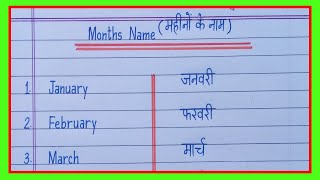 Months Name (महीनों के नाम)
1. January जनवरी
2. February फरवरी
3. March मार्च